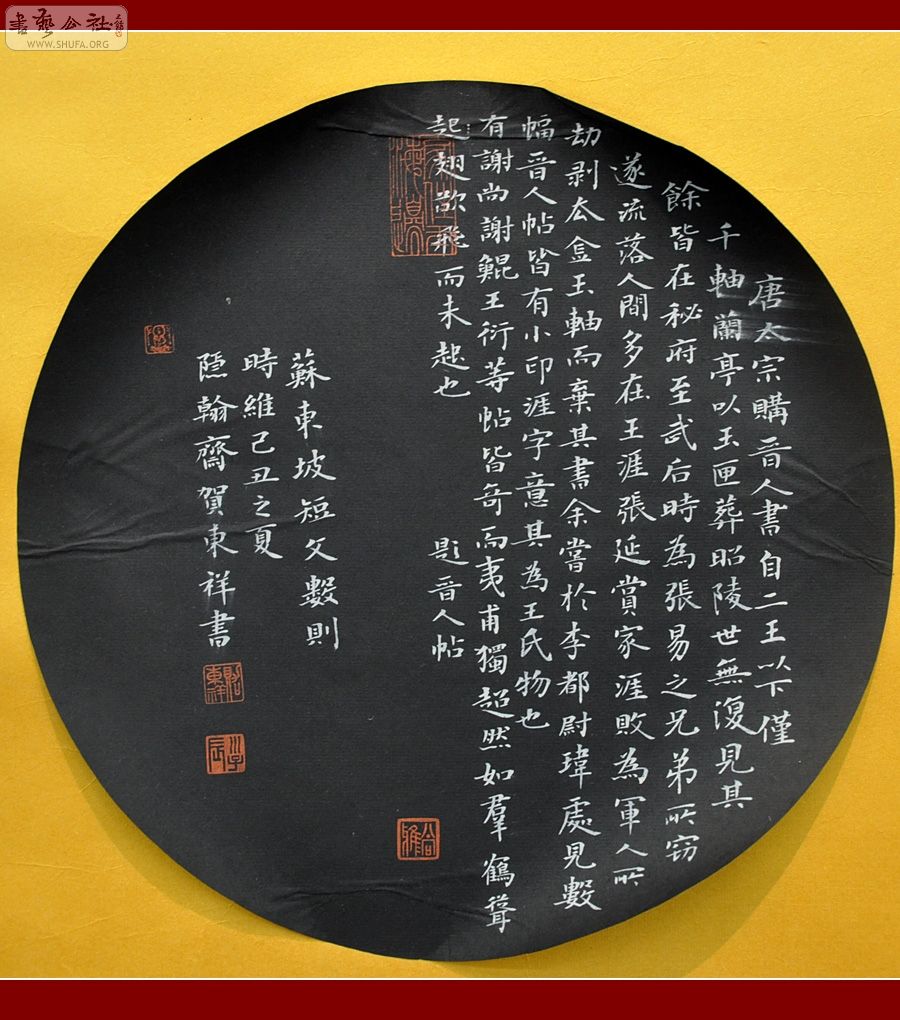 唐太宗購晉人書自二王以下僅
千軸蘭亭以玉匣葬昭陵世無復見其
餘皆在秘府至武后時為張易之兄弟所窃
遂流落人間多在王涯張延賞家涯敗為軍人所
劫剥去金玉軸而棄其書余嘗於李都尉瑋處見數
幅晉人帖皆有小印涯字意其為王氏物也
有謝尚謝鯤王衍等帖皆奇而夷甫獨超然如羣鶴聳
起翅欲飛而未起也 題晉人帖
蘇東坡短文數則
時維己丑之夏
隱翰齋賀東祥書
書藝公社
WWW.SHUFA.ORG